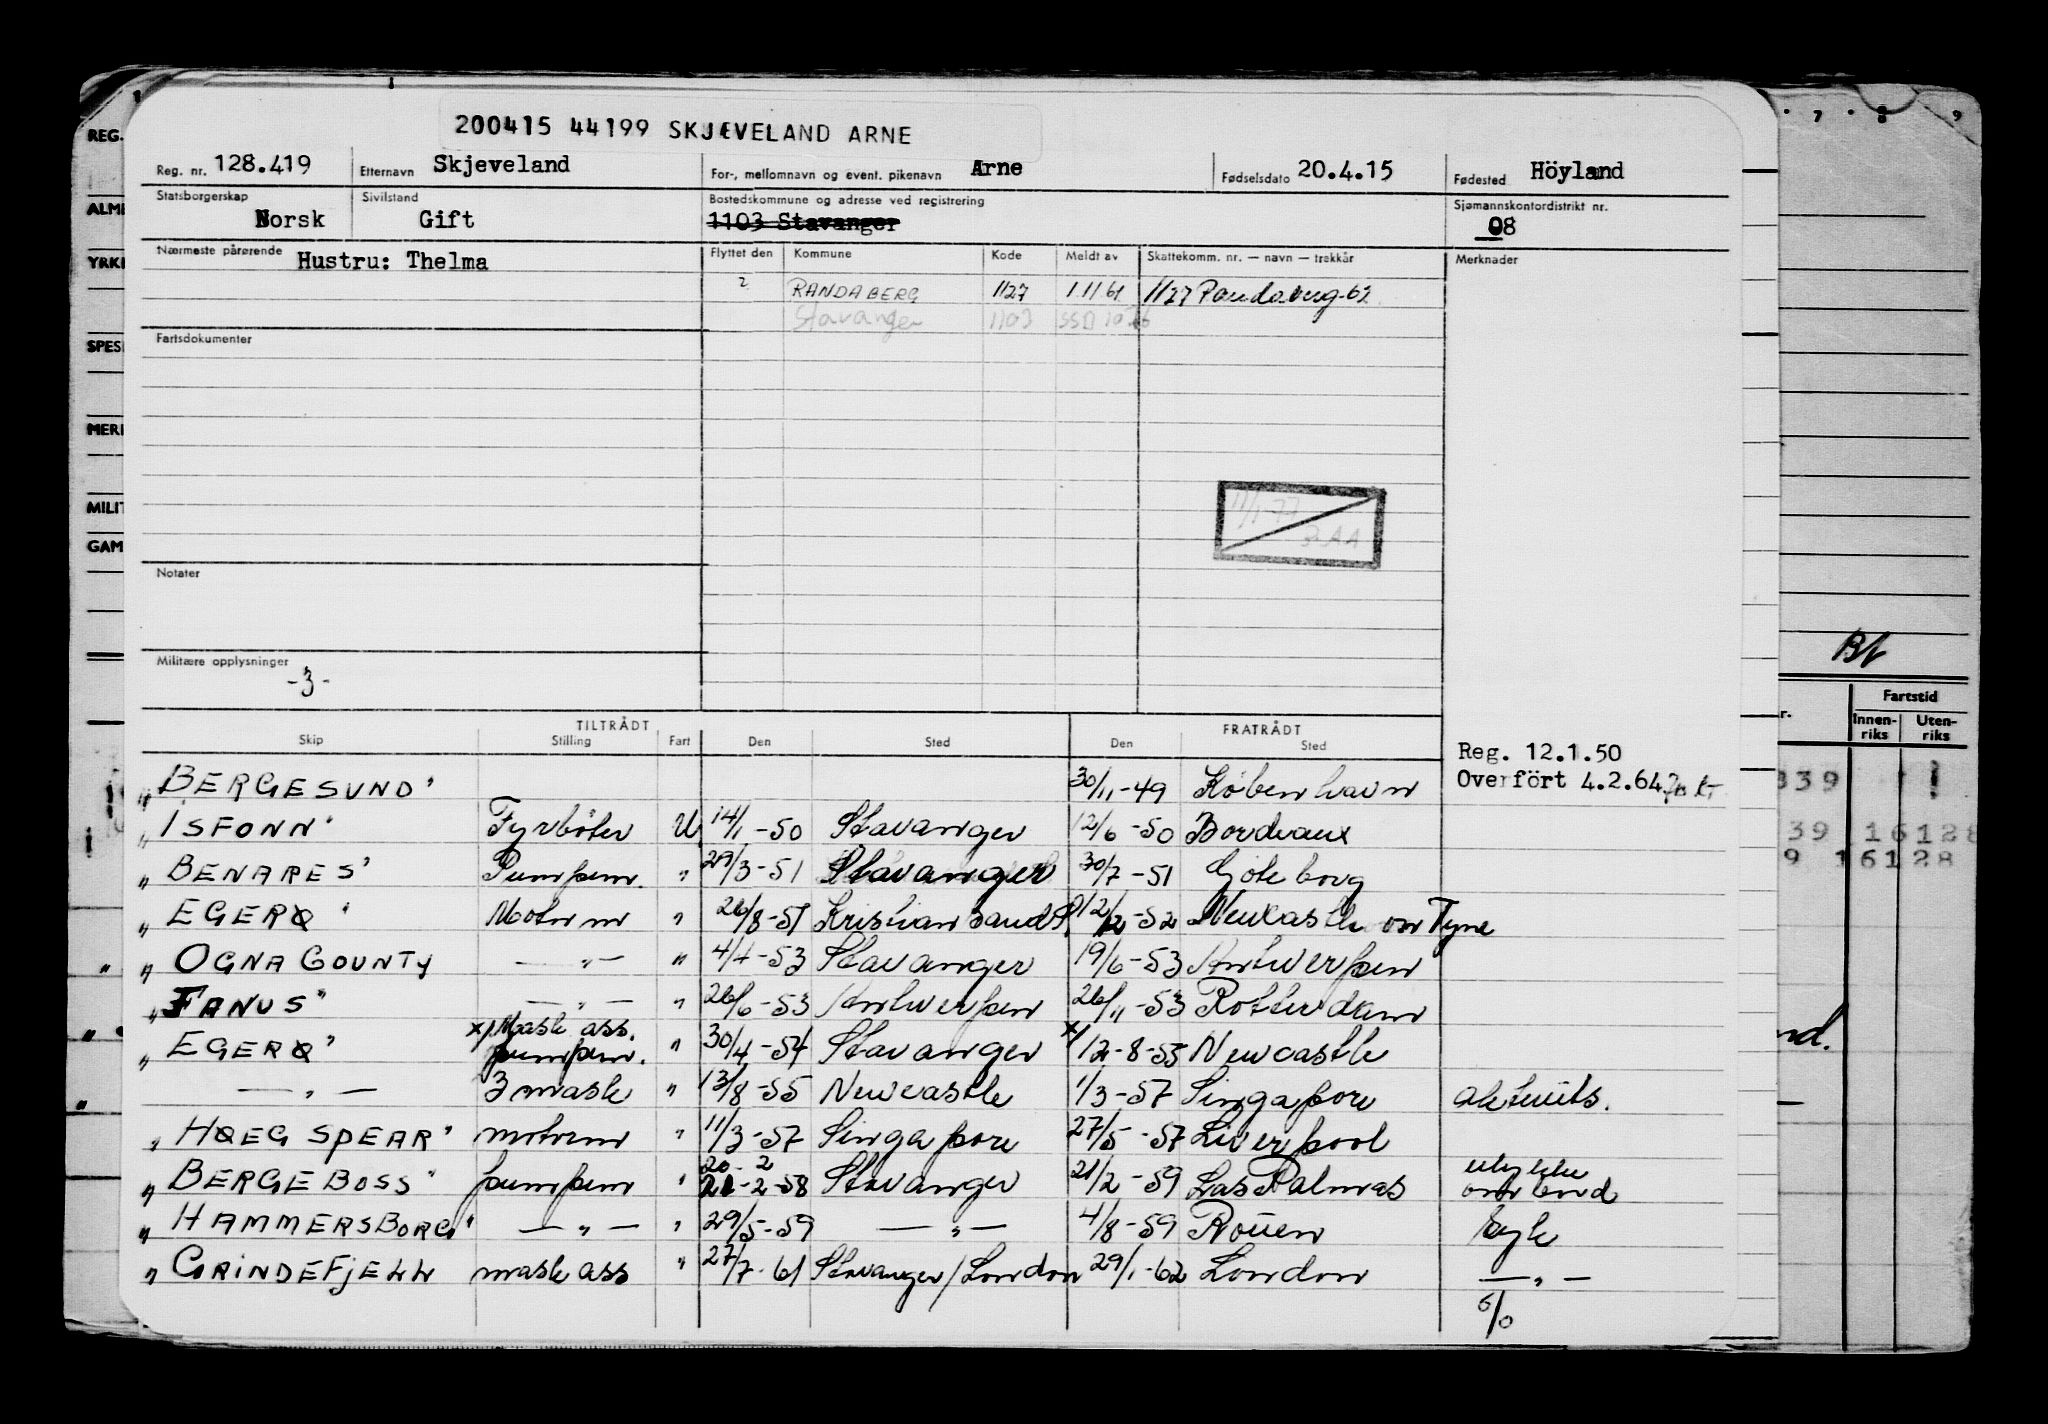 200415 44199 SKJÆVELAND ARNE
Reg. nr. 128.419 Etternavn Skjeveland For-, mellomnavn og event. pikenavn Arne Fødselsdato 20.4.15 Fødested Höyland
Statsborgerskap Norsk Sivilstand Gift Bostedskommune og adresse ved registrering 1103 Stavanger Sjømannskontordistrikt nr. 08
Nærmeste pårørende Hustru: Thelma Flyttet den Kommune Kode Meldt av Skattekomm. nr. — navn — trekkår Merknader
? RANDABERG 1127 1 11 61 1127 Randaberg-62
Stavanger 1103
Fartsdokumenter
11/1-77
Notater
Militære opplysninger
-3-
TILTRÅDT FRATRÅDT
Skip Stilling Fart Den Sted Den Sted
Reg. 12.1.50
Overfört 4.2.64
"BERGESUND" 30/11-49 København
"ISFONN" Fyrbøter U 14/1-50 Stavanger 12/6-50 Bordeaux
"BENARES" Pumpem. " 29/3-51 Stavanger 30/7-51 Gøteborg
"EGERØ" Motorm " 26/8-51 Kristiansand S. 12/12-52 Newcastle on Tyne
"OGNA COUNTY — " — " 4/4-53 Stavanger 19/6-53 Antwerpen
"FANUS" — " — " 26/6-53 Antwerpen 26/11-53 Rotterdam
"EGERØ" x/Mask ass. pumpem. " 30/4-54 Stavanger x/12-8-55 Newcastle
— " — 3 mask " 13/8-55 Newcastle 1/3-57 Singapore
"HØEG SPEAR" motorm " 11/3-57 Singapore 27/5-57 Liverpool
"BERGEBOSS" pumpem " 20-2 21-2-58 Stavanger 21/2-59 Las Palmas ulykke ombord
"HAMMERSBORG" — " — " 29/5-59 — " — 4/8-59 Rouen syk
"GRINDEFJELL mask ass " 27/7-61 Stavanger/London 29/1-62 London — " —
6/0
REG.
ALME
YRKE
SPES
MERK
MILIT
GAM
7 8 9
Bf
Fartstid
Innen-
riks
Uten-
riks
839
39 16128
9 16128
nd.